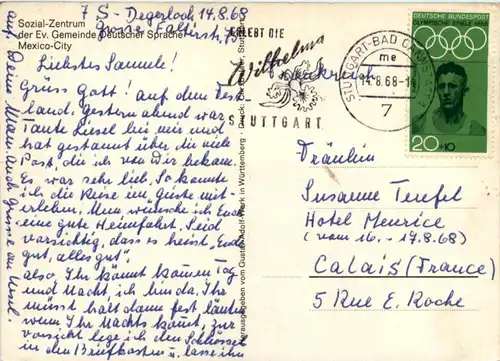 7 S-Degerloch 14.8.68
Sozial-Zentrum
der Ev. Gemeinde Deutscher Sprache
Mexico-City
Liebstes Sannele!
Grüss Gott! auf dem Fest-
land. Gestern abend war
Tante Liesel bei mir und
hat gestaunt über die viele
Post, die ich von Dir bekam.
Es war sehr lieb. So konnte
ich die Reise im Geiste mit-
erleben. Nun wünsche ich Euch
eine gute Heimfahrt. Seid
vorsichtig, dass es heisst, Ende
gut, alles gut.
also, Ihr könnt kommen Tag
und Nacht, ich bin da. Ihr
müsst halt dann fest läuten
wenn Ihr Nachts kommt, zur
Vorsicht lege ich den Schlüssel
in den Briefkasten u. lasse ihn
auf. Deine
ERLEBT DIE
Wilhelma
STUTTGART
STUTTGART-BAD
me
14.8.68-1
7
DEUTSCHE BUNDESPOST
OLYMPISCHE SPIELE 1968
20+10
Frankreich
Fräulein
Susanne Teufel
Hotel Meurice
(vom 16. - 17.8.68)
Calais (France)
5 Rue E. Roche